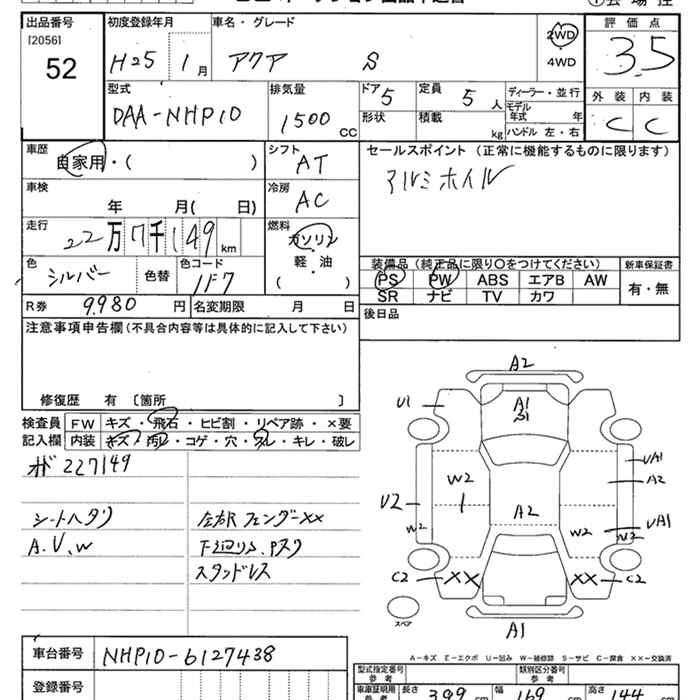 出品番号 初度登録年月 車名・グレード 2WD 評価点
[2056]
52 H25 1月 アクア S 4WD 3.5
型式 排気量 ドア 定員 ディーラー・並行 外装 内装
DAA-NHP10 1500 CC 5 5人 モデル年式 年 C C
形状 積載 kg ハンドル 左・右
車歴 シフト セールスポイント (正常に機能するものに限ります)
自家用・( ) AT アルミホイル
車検 冷房
年 月( 日) AC
走行 燃料
22万7千149km ガソリン
軽・油
( )
色 色替 色コード 装備品 (純正品に限り〇をつけてください) 新車保証書
シルバー 1F7 PS PW ABS エアB AW 有・無
SR ナビ TV カワ
R券 9980円 名変期限 月 日 後日品
注意事項申告欄(不具合内容等は具体的に記入して下さい)
修復歴 有 〔箇所 〕
検査員 FW キズ・飛石・ヒビ割・リペア跡・×要
記入欄 内装 キズ・汚レ・コゲ・穴・スレ・キレ・破レ
227149
シートヘタリ 左右Rフェンダーxx
A.V.W 下廻りS.Pスク
スタッドレス
A2
U1 A1
S1
UA1
W2 A2
U2 A2
W2 W2 UA1
W2
C2 XX XX C2
スペア
A1
A-キズ E-エクボ U-凹み W-補修跡 S-サビ C-腐食 XX-交換済
車台番号 NHP10-6127438 型式指定番号 参考 類別区分番号 参考
登録番号 車庫証明用 参考 長さ 399cm 幅 169cm 高さ 144cm